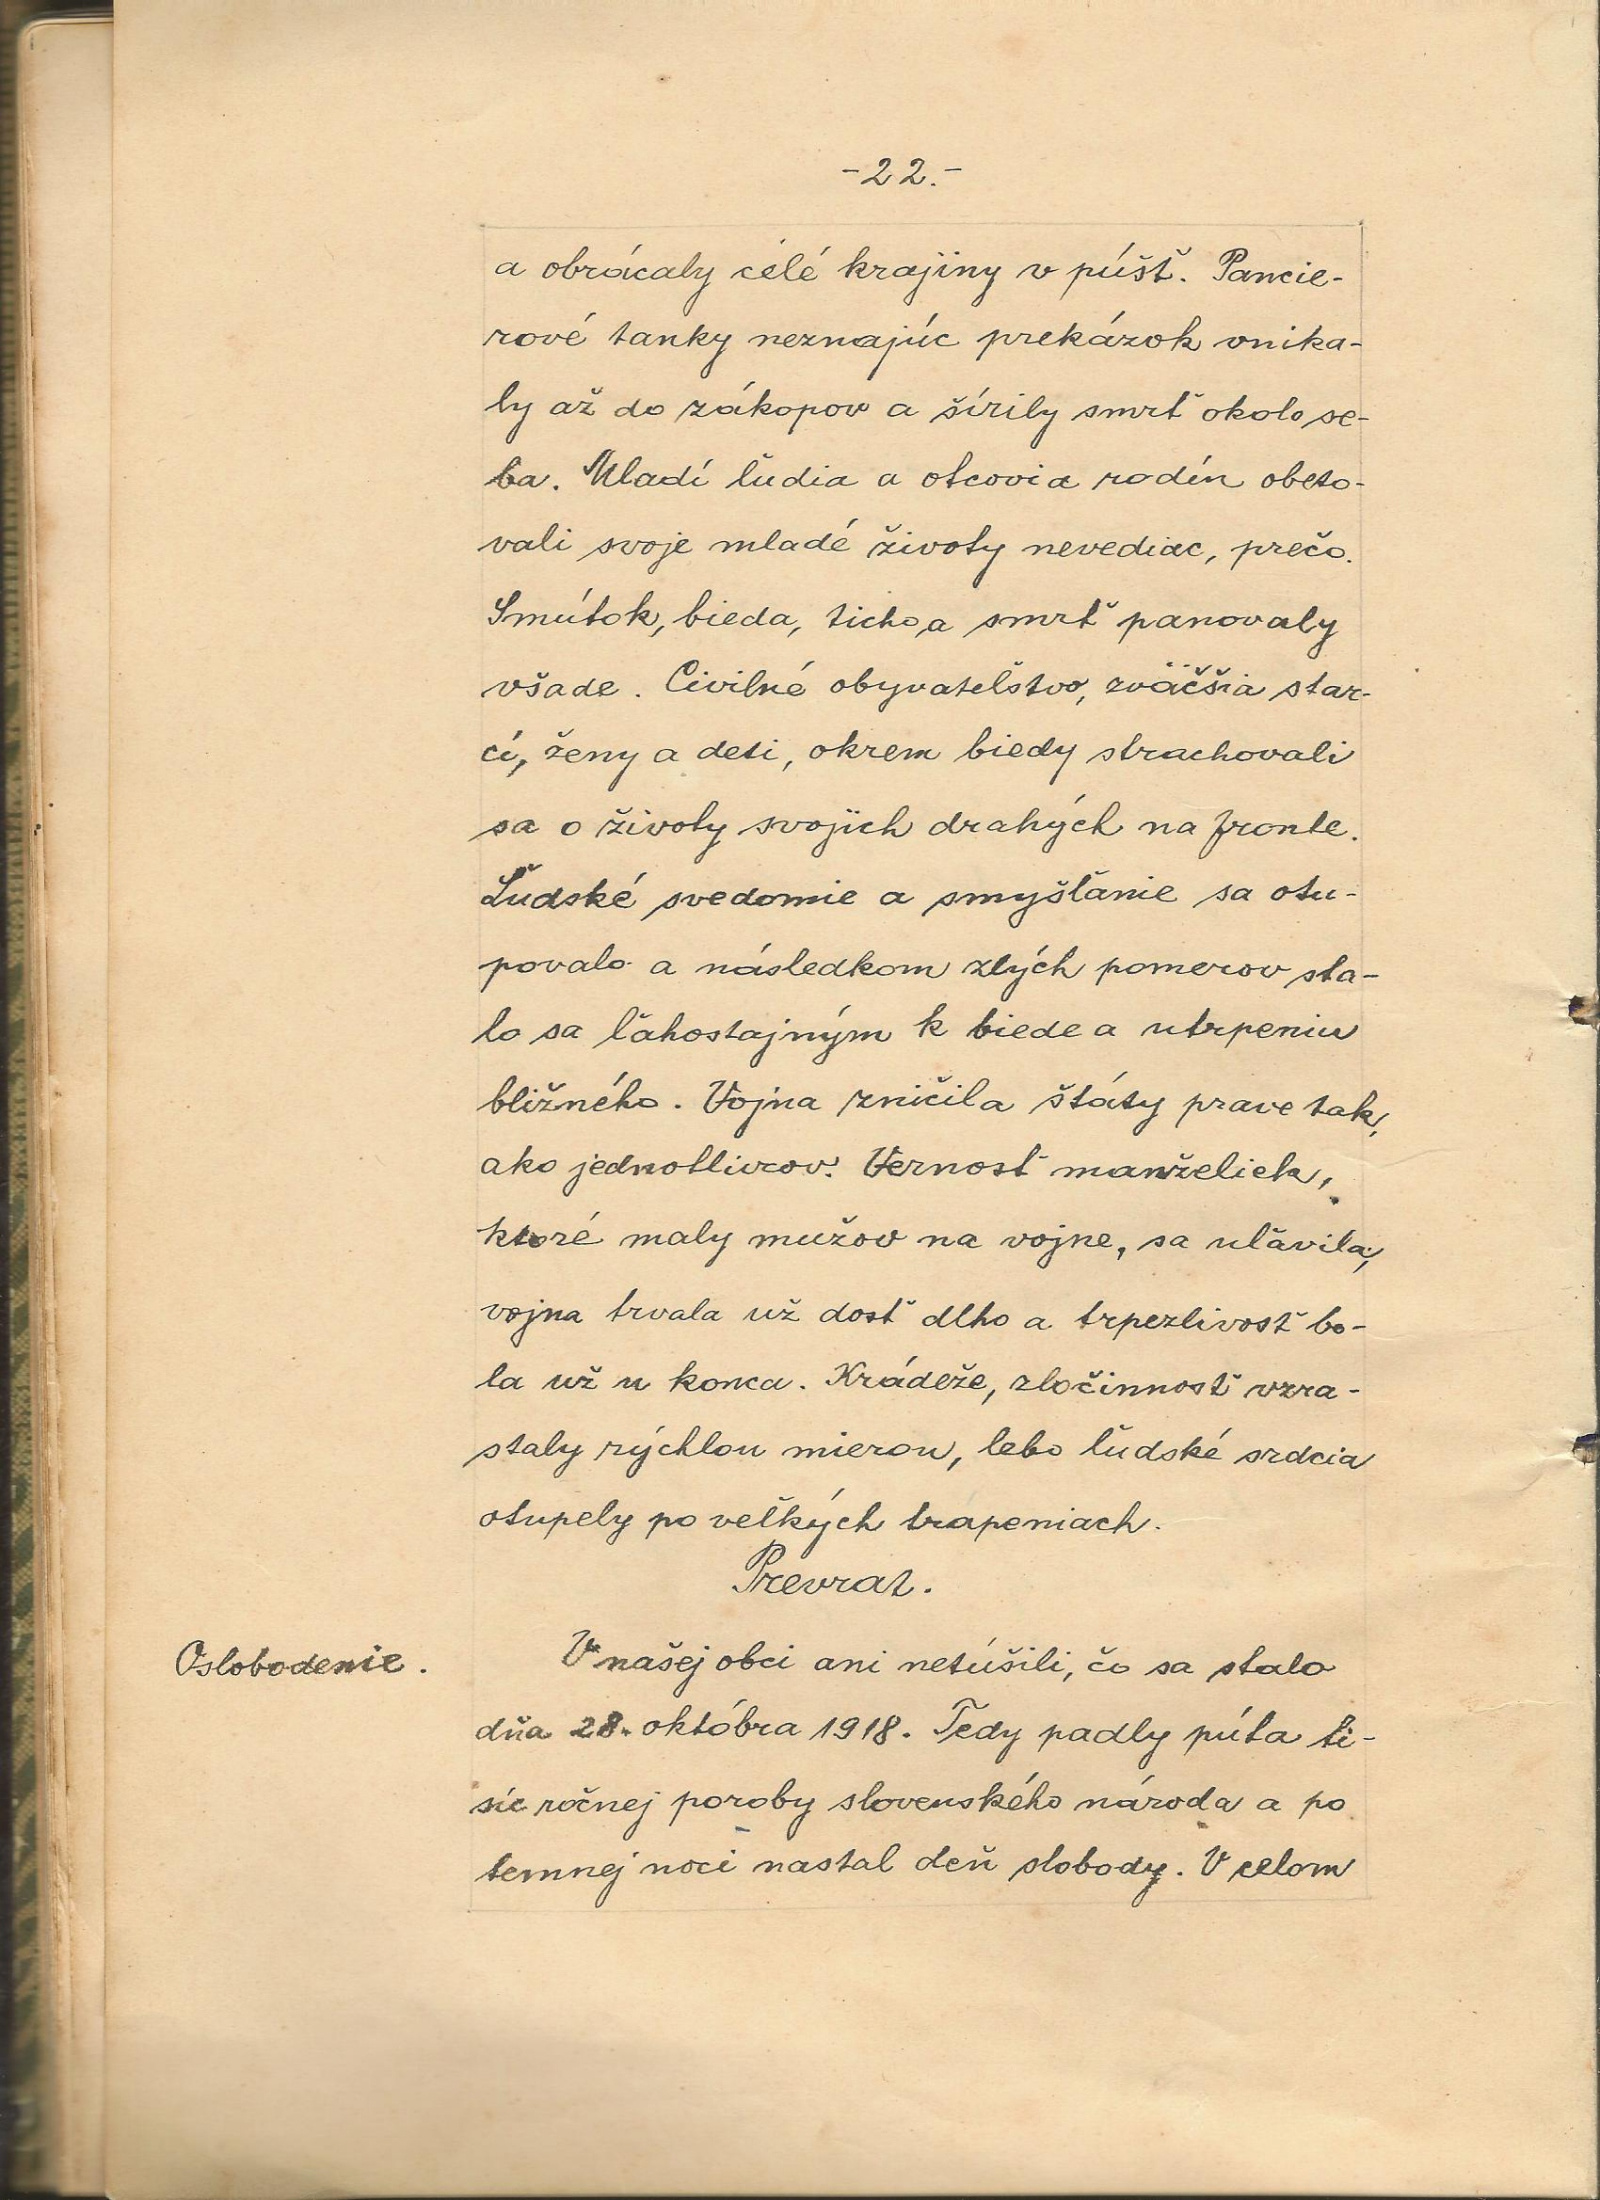 -22.-
a obrácaly célé krajiny v púšť. Pancie-
rové tanky neznajúc prekázok vnika-
ly až do zákopov a šírily smrť okolo se-
ba. Mladí ľudia a otcovia rodín obeto-
vali svoje mladé životy nevediac, prečo.
Smútok, bieda, ticho a smrť panovaly
všade. Civilné obyvateľstvo, zväčšia star-
ci, ženy a deti, okrem biedy strachovali
sa o životy svojich drahých na fronte.
Ľudské svedomie a smyšľanie sa otu-
povalo a následkom zlých pomerov sta-
lo sa ľahostajným k biede a utrpeniu
bližného. Vojna zničila štáty prave tak,
ako jednotlivcov. Vernosť manželiek,
ktoré maly mužov na vojne, sa uľavila,
vojna trvala už dosť dlho a trpezlivosť bo-
la už u konca. Krádeže, zločinnosť vzra-
staly rýchlou mierou, lebo ľudské srdcia
otupely po veľkých trapeniach.
Prevrat.
Oslobodenie.
V našej obci ani netúšili, čo sa stalo
dňa 28. októbra 1918. Tedy padly púta ti-
síc ročnej poroby slovenského národa a po
temnej noci nastal deň slobody. V celom